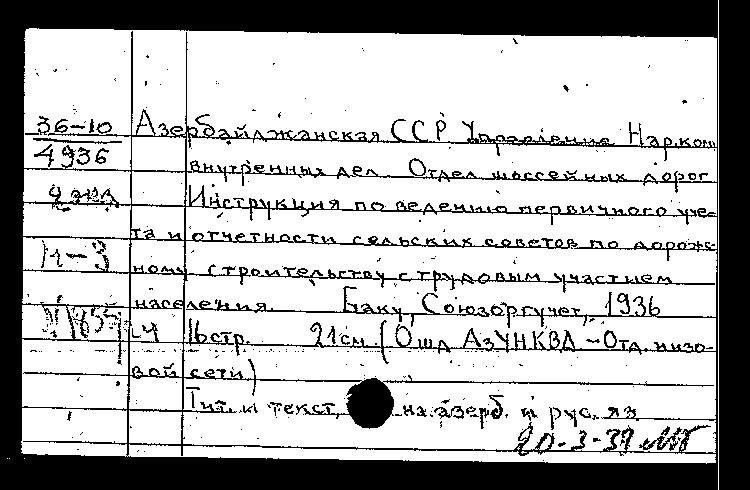 36-10 Азербайджанская ССР Управление Нар.ком
4936 внутренных дел Отдел шоссейных дорог
4 экз Инструкция по ведению первичного уче-
та и отчетности сельских советов по дорож-
н-3 ному строительству с трудовым участием
населения. Баку, Союзоргучет, 1936
16 стр. 21 см (Ошд АзУНКВД - Отд. низо-
вой сети)
Тит. и текст, на азерб. и рус. яз
20-3-37